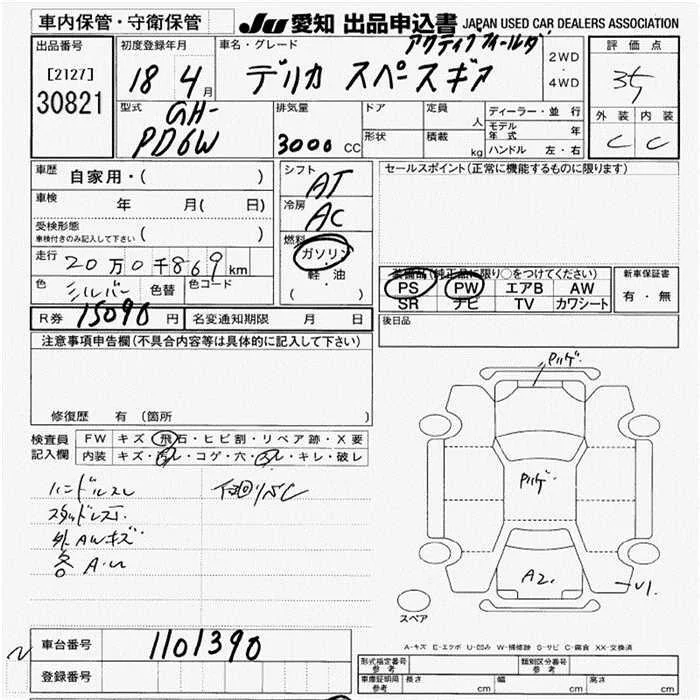 車内保管・守衛保管
JU 愛知 出品申込書 JAPAN USED CAR DEALERS ASSOCIATION
出品番号
[2127]
30821
初度登録年月
18 年 4 月
車名・グレード
アクティブフィールド
デリカ スペースギア
2WD
・
4WD
評価点
3.5
外装 内装
C C
型式
GH-
PD6W
排気量
3000 CC
ドア
形状
定員 人
積載 kg
ディーラー・並行
モデル年式 年
ハンドル 左・右
車歴 自家用・( )
車検 年 月( 日)
受検形態
車検付きのみ記入して下さい ( )
走行 20万0千869km
色 シルバー 色替 色コード
シフト AT
冷房 AC
燃料
ガソリン
軽・油
( )
セールスポイント(正常に機能するものに限ります)
装備品(純正品に限り○をつけてください)
PS PW エアB AW
SR ナビ TV カワシート
新車保証書
有・無
R券 15090 円 名変通知期限 月 日
後日品
注意事項申告欄(不具合内容等は具体的に記入して下さい)
修復歴 有 (箇所
検査員
記入欄
FW キズ・飛石・ヒビ割・リペア跡・X要
内装 キズ・汚レ・コゲ・穴・スレ・キレ・破レ
ハンドルスレ
スタッドレス
外AWキズ
各A・U
下回りSC
Pハゲ
Pハゲ
A2
U1
スペア
A-キズ E-エクボ U-凹み W-補修跡 S-サビ C-腐食 XX-交換済
車台番号 1101390
登録番号
型式指定番号
参考
類別区分番号
参考
車庫証明用
参考
長さ cm 幅 cm 高さ cm